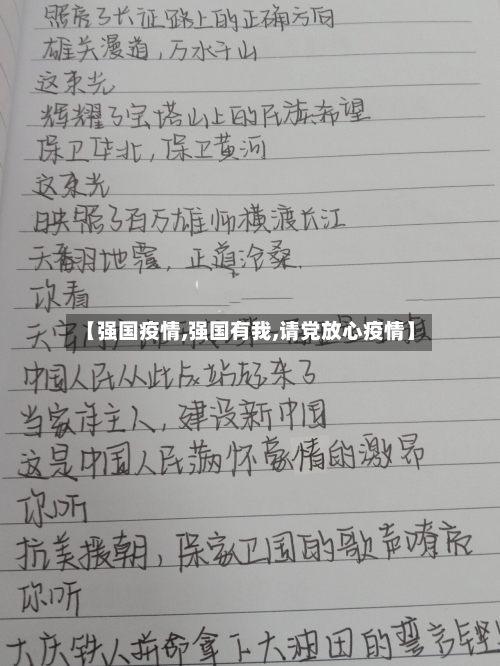 照亮了长征路上的正确方向
雄关漫道，万水千山
这束光
辉耀了宝塔山上的民族希望
保卫华北，保卫黄河
这束光
映照了百万雄师横渡长江
天翻地覆，正道沧桑
你看
【强国疫情,强国有我,请党放心疫情】
中国人民从此点站起来了
当家作主人，建设新中国
这是中国人民满怀豪情的激昂
你听
抗美援朝，保家卫国的歌声嘹亮
你听
大庆铁人拼命拿下大油田的誓言铿